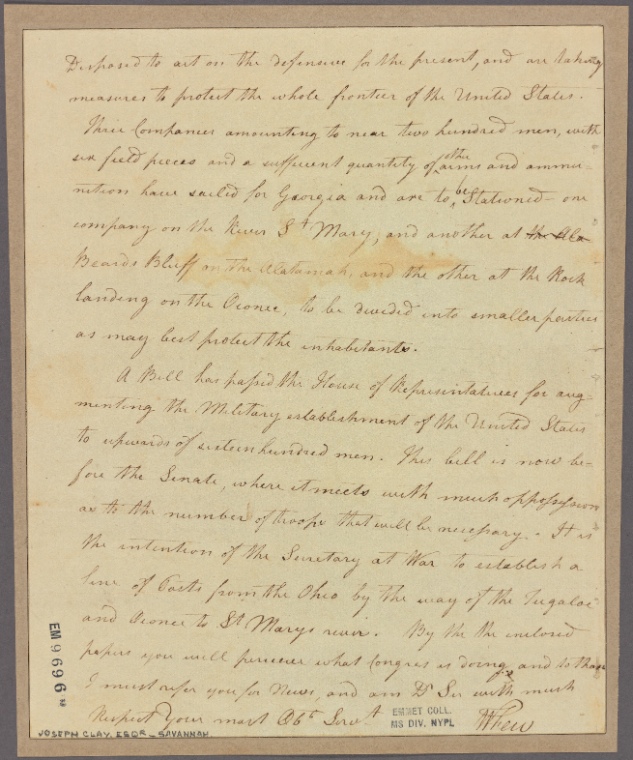 Disposed to act on the defensive for the present, and are taking
measures to protect the whole frontier of the United States.
Three Companies amounting to near two hundred men, with
six field pieces and a sufficient quantity of other arms and ammu-
nition have sailed for Georgia and are to be Stationed - one
company on the River St Mary, and another at the Ala
Beards Bluff on the Alatamah, and the other at the Rock
landing on the Oconee, to be divided into smaller parties
as may best protect the inhabitants.
A Bill has passed the House of Representatives for aug-
menting the Military establishment of the United States
to upwards of sixteen hundred men. This bill is now be-
fore the Senate, where it meets with much opposition
as to the number of troops that will be necessary. - It is
the intention of the Secretary at War to establish a
line of Posts from the Ohio by the way of the Tugaloe
and Oconee to St Marys river. By the the inclosed
papers you will perceive what Congress is doing, and to those
I must refer you for News, and am Dr Sir with much
Respect Your most Obt Servt
W Few
EM 9696
EMMET COLL.
MS DIV. NYPL
JOSEPH CLAY, ESQR - SAVANNAH